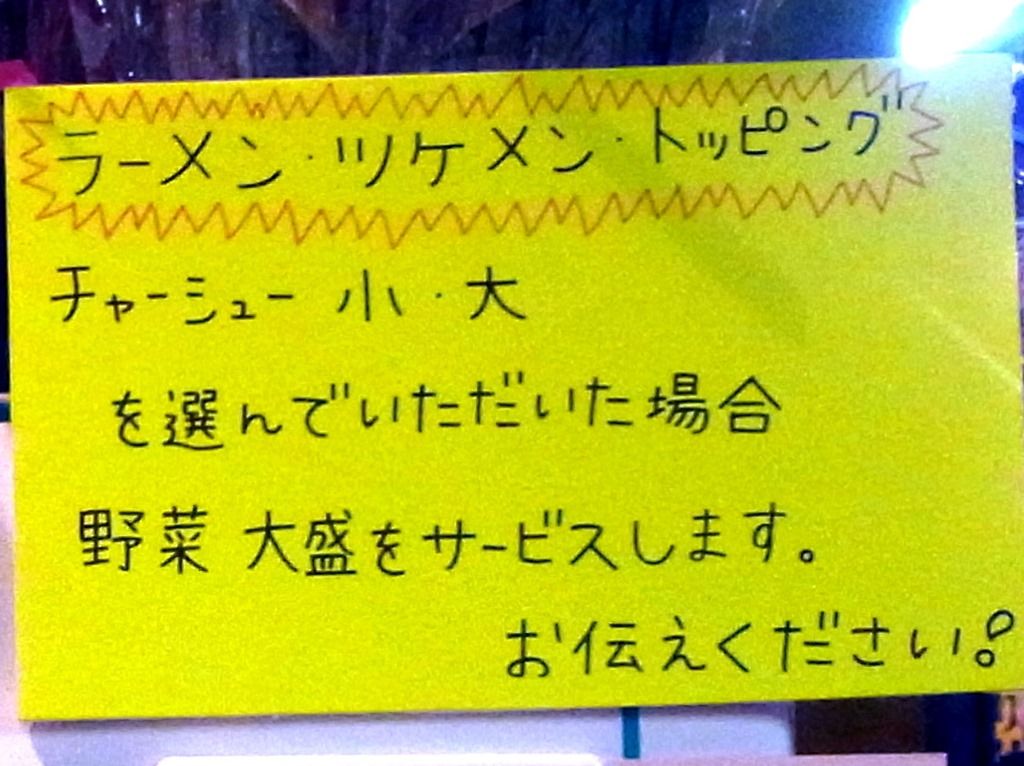 ラーメン・ツケメン・トッピング
チャーシュー 小・大
を選んでいただいた場合
野菜 大盛をサービスします。
お伝えください!